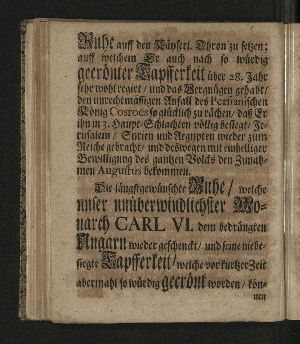 Ruhe auff den Käyserl. Thron zu setzen;
auff welchem Er auch nach so würdig
geerönter Tapfferkeit über 28. Jahr
sehr wohl regiert / und das Vergnügen gehabt /
den unrechtmässigen Anfall des Persianischen
König Cosroës so glücklich zu rächen / daß Er
ihn in 3. Haupt-Schlachten völlig besiegt / Je-
rusalem / Syrien und Aegypten wieder zum
Reiche gebracht / und deswegen mit einhelliger
Bewilligung des gantzen Volcks den Zunah-
men Augustus bekommen.
Die längstgewünschte Ruhe / welche
unser unüberwindlichster Mo-
narch CARL VI. dem bedrängten
Ungarn wieder geschenckt / und seine niebe-
siegte Tapfferkeit / welche vor kurtzer Zeit
abermahl so würdig geerönt worden / kön-
nen